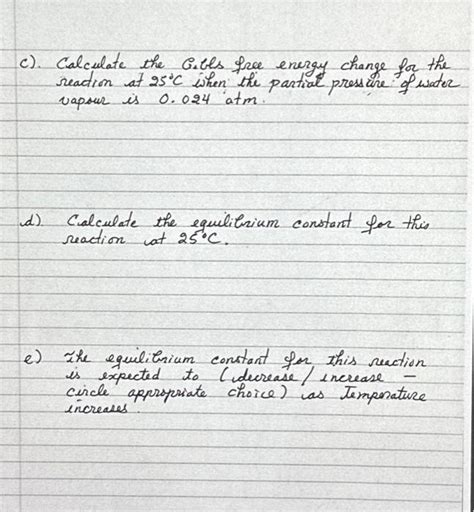 c). Calculate the Gibbs free energy change for the
reaction at 25°C when the partial pressure of water
vapour is 0.024 atm.
d) Calculate the equilibrium constant for this
reaction at 25°C.
e) The equilibrium constant for this reaction
is expected to (decrease / increase –
circle appropriate choice) as Temperature
increases.